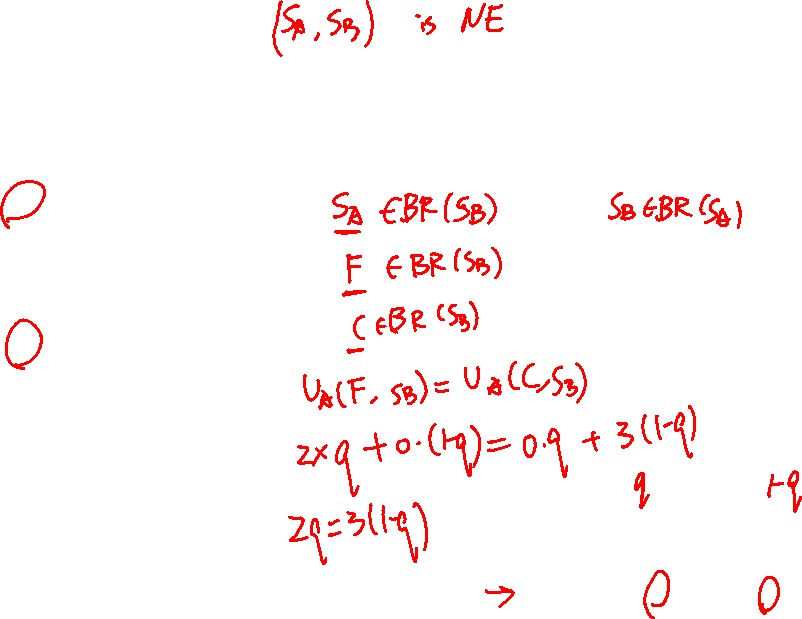 (S_A, S_B) is NE
S_A ∈ BR(S_B) S_B ∈ BR(S_A)
F ∈ BR(S_B)
C ∈ BR(S_B)
U_A(F, S_B) = U_A(C, S_B)
2×q + 0·(1-q) = 0·q + 3(1-q)
q 1-q
2q = 3(1-q)
→